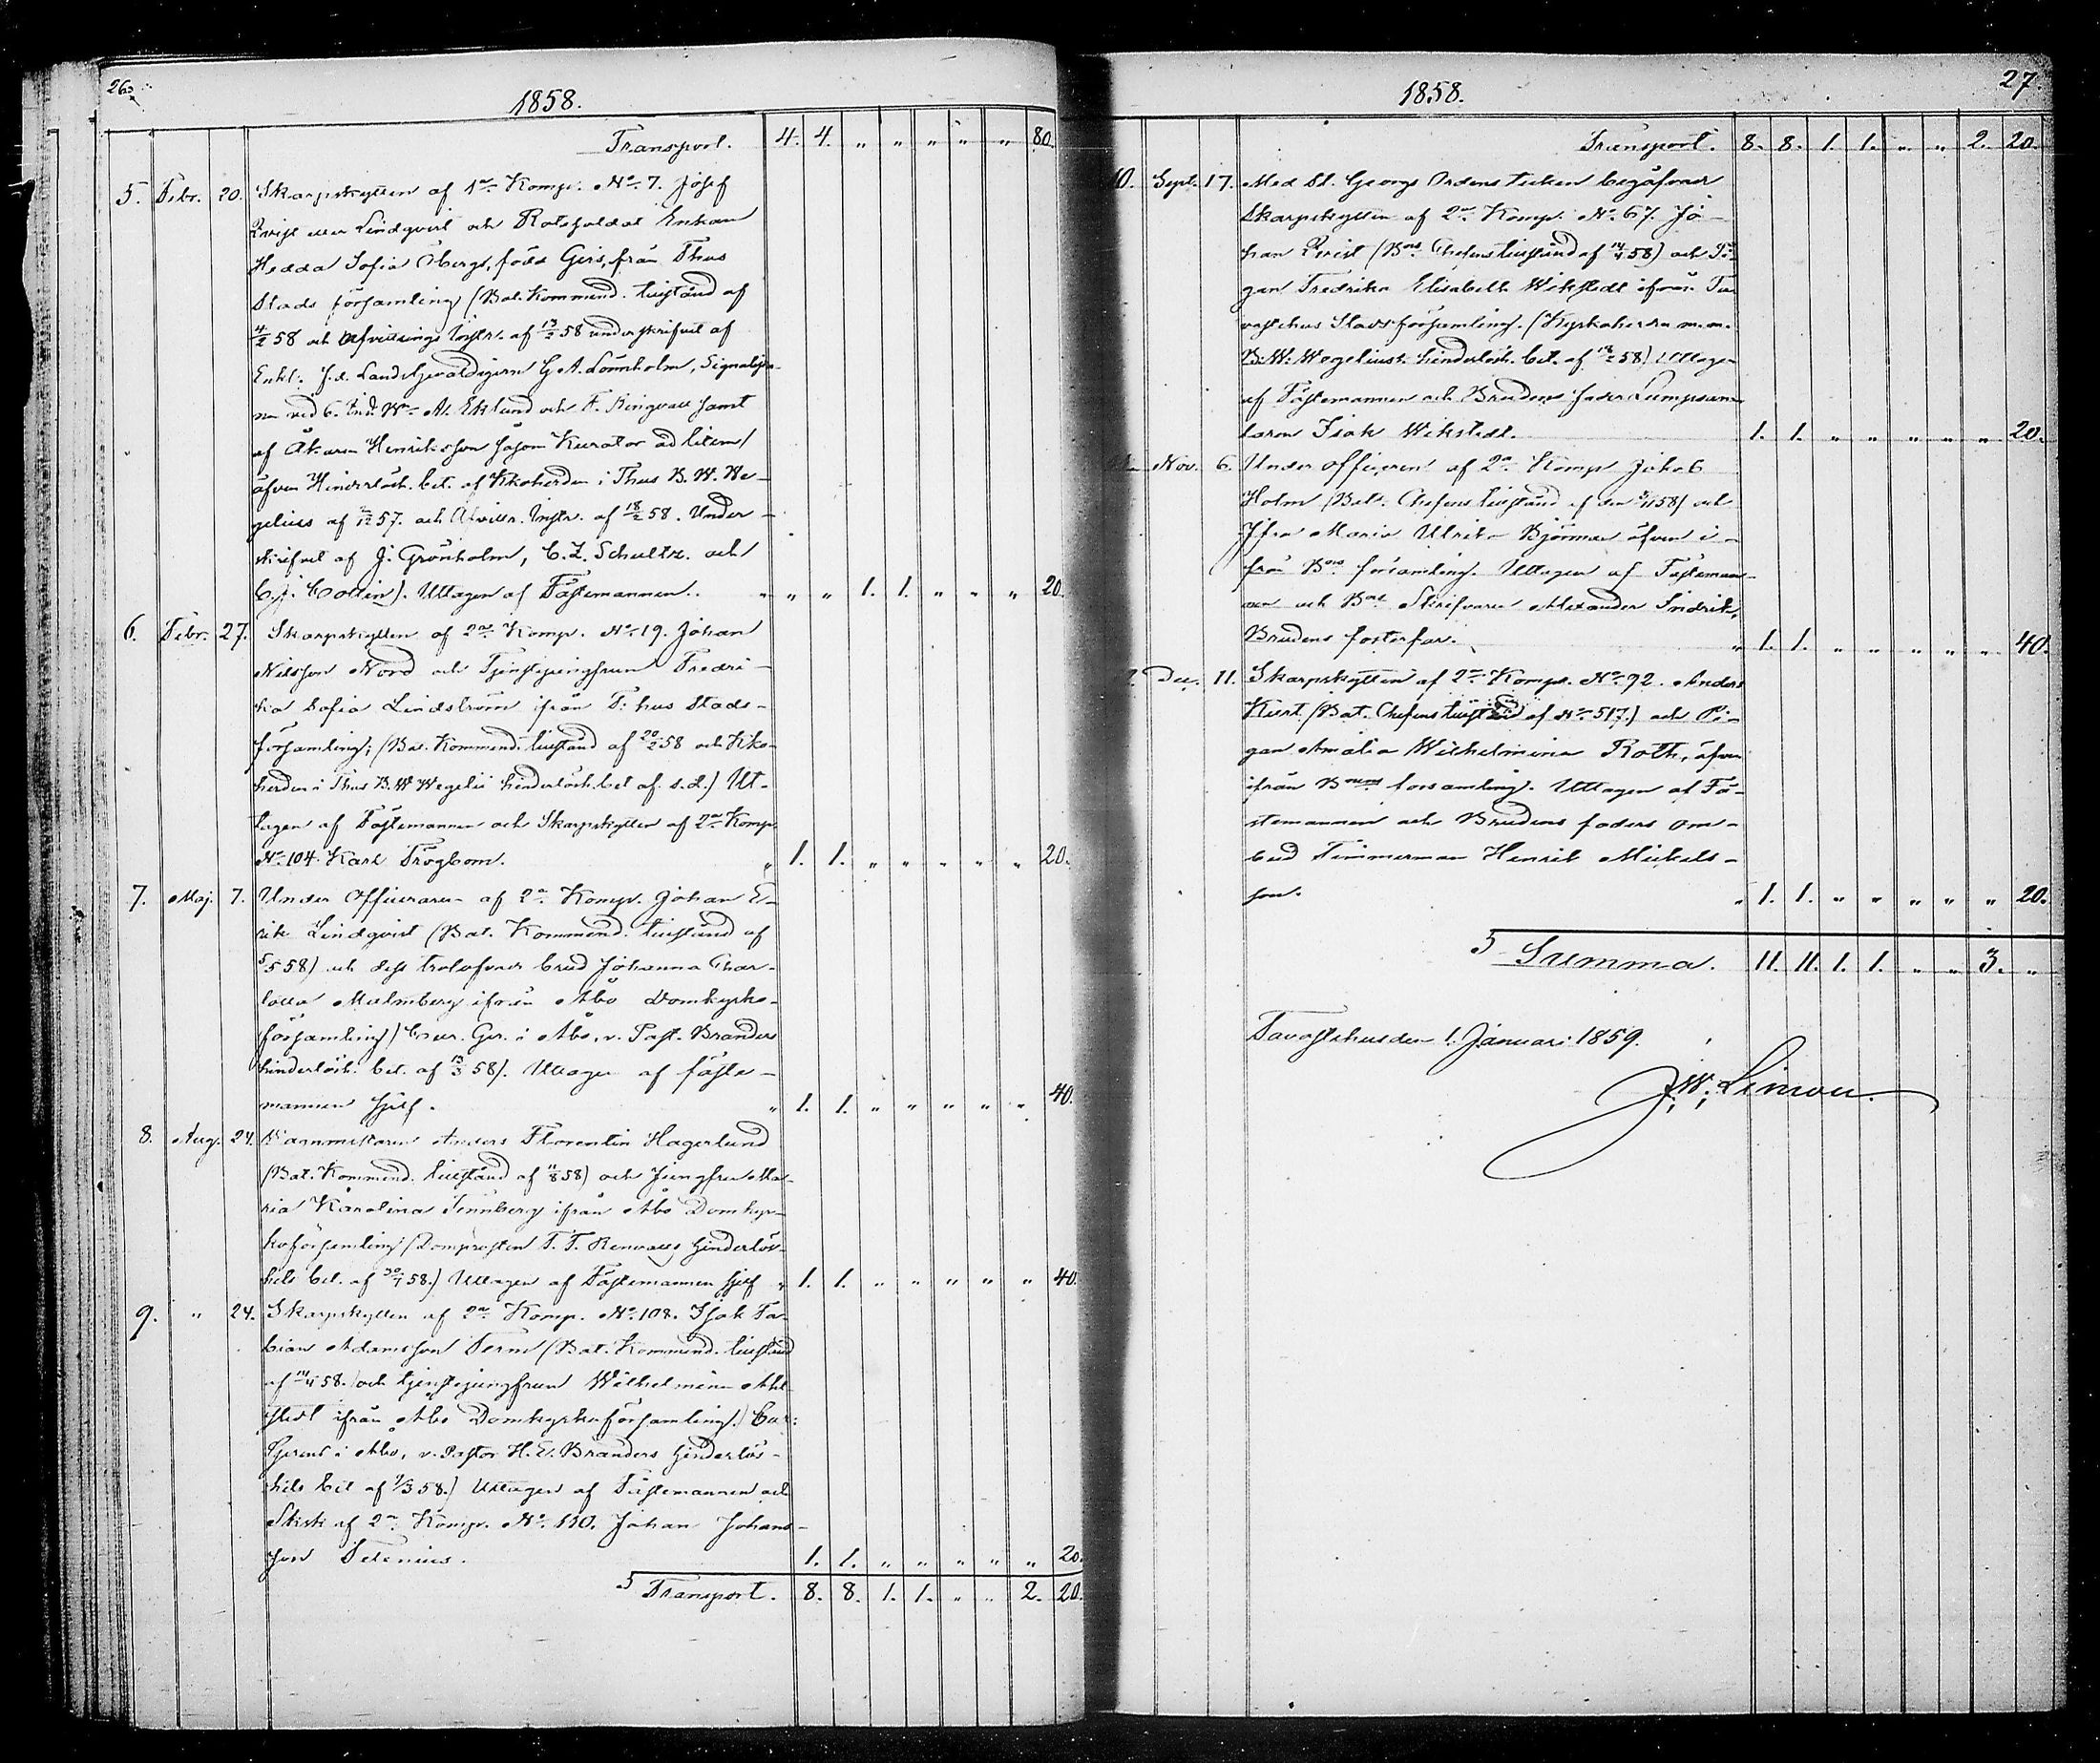 26.
1858.
Transport. 4. 4. " " " " " 80.
5. Febr. 20. Skarpskytten af 1a Komp. No 7. Josef
Qvist eller Lindqvist och Rotesoldat Enkan
Hedda Sofia Öberg, född Girs, från Thus
Stads församling (Bat. Kommend. tillstånd af
4/2 58 och Afvittrings Instr. af 13/2 58 underskrifvet af
Lönnholm,
ne vid 6. Ind. Bn A. Eklund och F. Ringvall samt
af Åkaren Henriksson såsom Kurator ad litem/
äfven Hinderlösh. bet. af Kkoherden i Thus B. W. We-
gelius af 57. och Afvittr. Instr. af 18/2 58. Under-
skrifvet af J. Grönholm, C. Z. Schultz. och
C. J. Collin). Uttagen af Fästemannen. " " " 1. 1. " " " 20.
6. Febr. 27. Skarpskytten af 2a Komp. No 19. Johan
Nilsson Nord och Tjenstejungfrun Fredri-
ka Sofia Lindström ifrån T:hus Stads-
församling; (Bat. Kommend. tillstånd af 20/2 58 och Kko-
herden i Thus B. W. Wegelii hinderlösh. bet af s. d.) Ut-
tagen af Fästemannen och Skarpskytten af 2a Komp.
No 104. Karl Trogbom. " 1. 1. " " " " " 20.
7. Maj. 7. Under Officeraren af 2a Komp. Johan E-
rik Lindqvist (Bat. Kommend. tillstånd af
5/5 58) och dess trolofvade brud Johanna Char-
lotta Malmberg ifrån Åbo Domkyrko-
församling) Cur. Ger. i Åbo, v. Past. Branders
hinderlösh. bet. af 13/3 58). Uttagen af fäste-
mannen sjelf. " 1. 1. " " " " " 40.
8. Aug. 24. Anders Florentin Hagerlund
(Bat. Kommend. tillstånd af 11/8 58) och Jungfru Ma-
ria Karolina Tennberg ifrån Åbo Domkyr-
koförsamling (Domprosten T. T. Renvalls hinderlös-
hets bet. af 58.) Uttagen af Fästemannen sjelf " 1. 1. " " " " " 40.
9. " 24. Skarpskytten af 2a Komp. No 108. Isak Fa-
bian Adamsson Term (Bat. Kommend. tillstånd
af 58.) och tjenstejungfrun Wilhelmina Ahl-
stedt ifrån Åbo Domkyrkoförsamling.) Cur:
Gerens i Åbo, v. Pastor H. E. Branders hinderlös-
hets bet af 1/3 58.) Uttagen af Fästemannen och
Skrsk af 2a Komp. No 130. Johan Johans-
son Selenius. 1. 1. " " " " " 20.
Transport. 8. 8. 1. 1. " " 2. 20.
27.
1858.
Transport. 8. 8. 1. 1. " " 2. 20.
10. Sept. 17. Med St. Georgs Ordens tecken begåfvade
Skarpskytten af 2a Komp. No 67. Jo-
han Qvist (Bns Chefens tillstånd af 58) och Pi-
gan Fredrika Elisabeth Wikstedt ifrån Ta-
vastehus Stadsförsamling. (Kyrkoherden m.m.
B. W. Wegelius's hinderlösh. bet. af 58) Uttagen
af Fästemannen och Brudens fader Lumpsam-
laren Isak Wikstedt. 1. 1. " " " " " 20.
Nov. 6. Under officeren af 2a Komp Jakob
Holm (Bat. Chefens tillstånd af den 58) och
Jfru Maria Ulrika Björnman äfven i-
från Bns församling. Uttagen af Fästeman-
nen och Bns Skrifvaren Alexander Indrik,
Brudens fosterfar. " 1. 1. " " " " " 40.
Dec. 11. Skarpskytten af 2a Komp. No 92. Anders
Kurt (Bat. Chefens tillstånd af No 517.) och Pi-
gan Amalia Wilhelmina Roth, äfven
ifrån Bnens församling. Uttagen af Fä-
stemannen och Brudens faders om-
bud Timmerman Henrik Mickels-
son. " 1. 1. " " " " " 20.
Summa. 11. 11. 1. 1. " " 3. "
Tavastehus den 1. Januari 1859.
J. W. Limou.